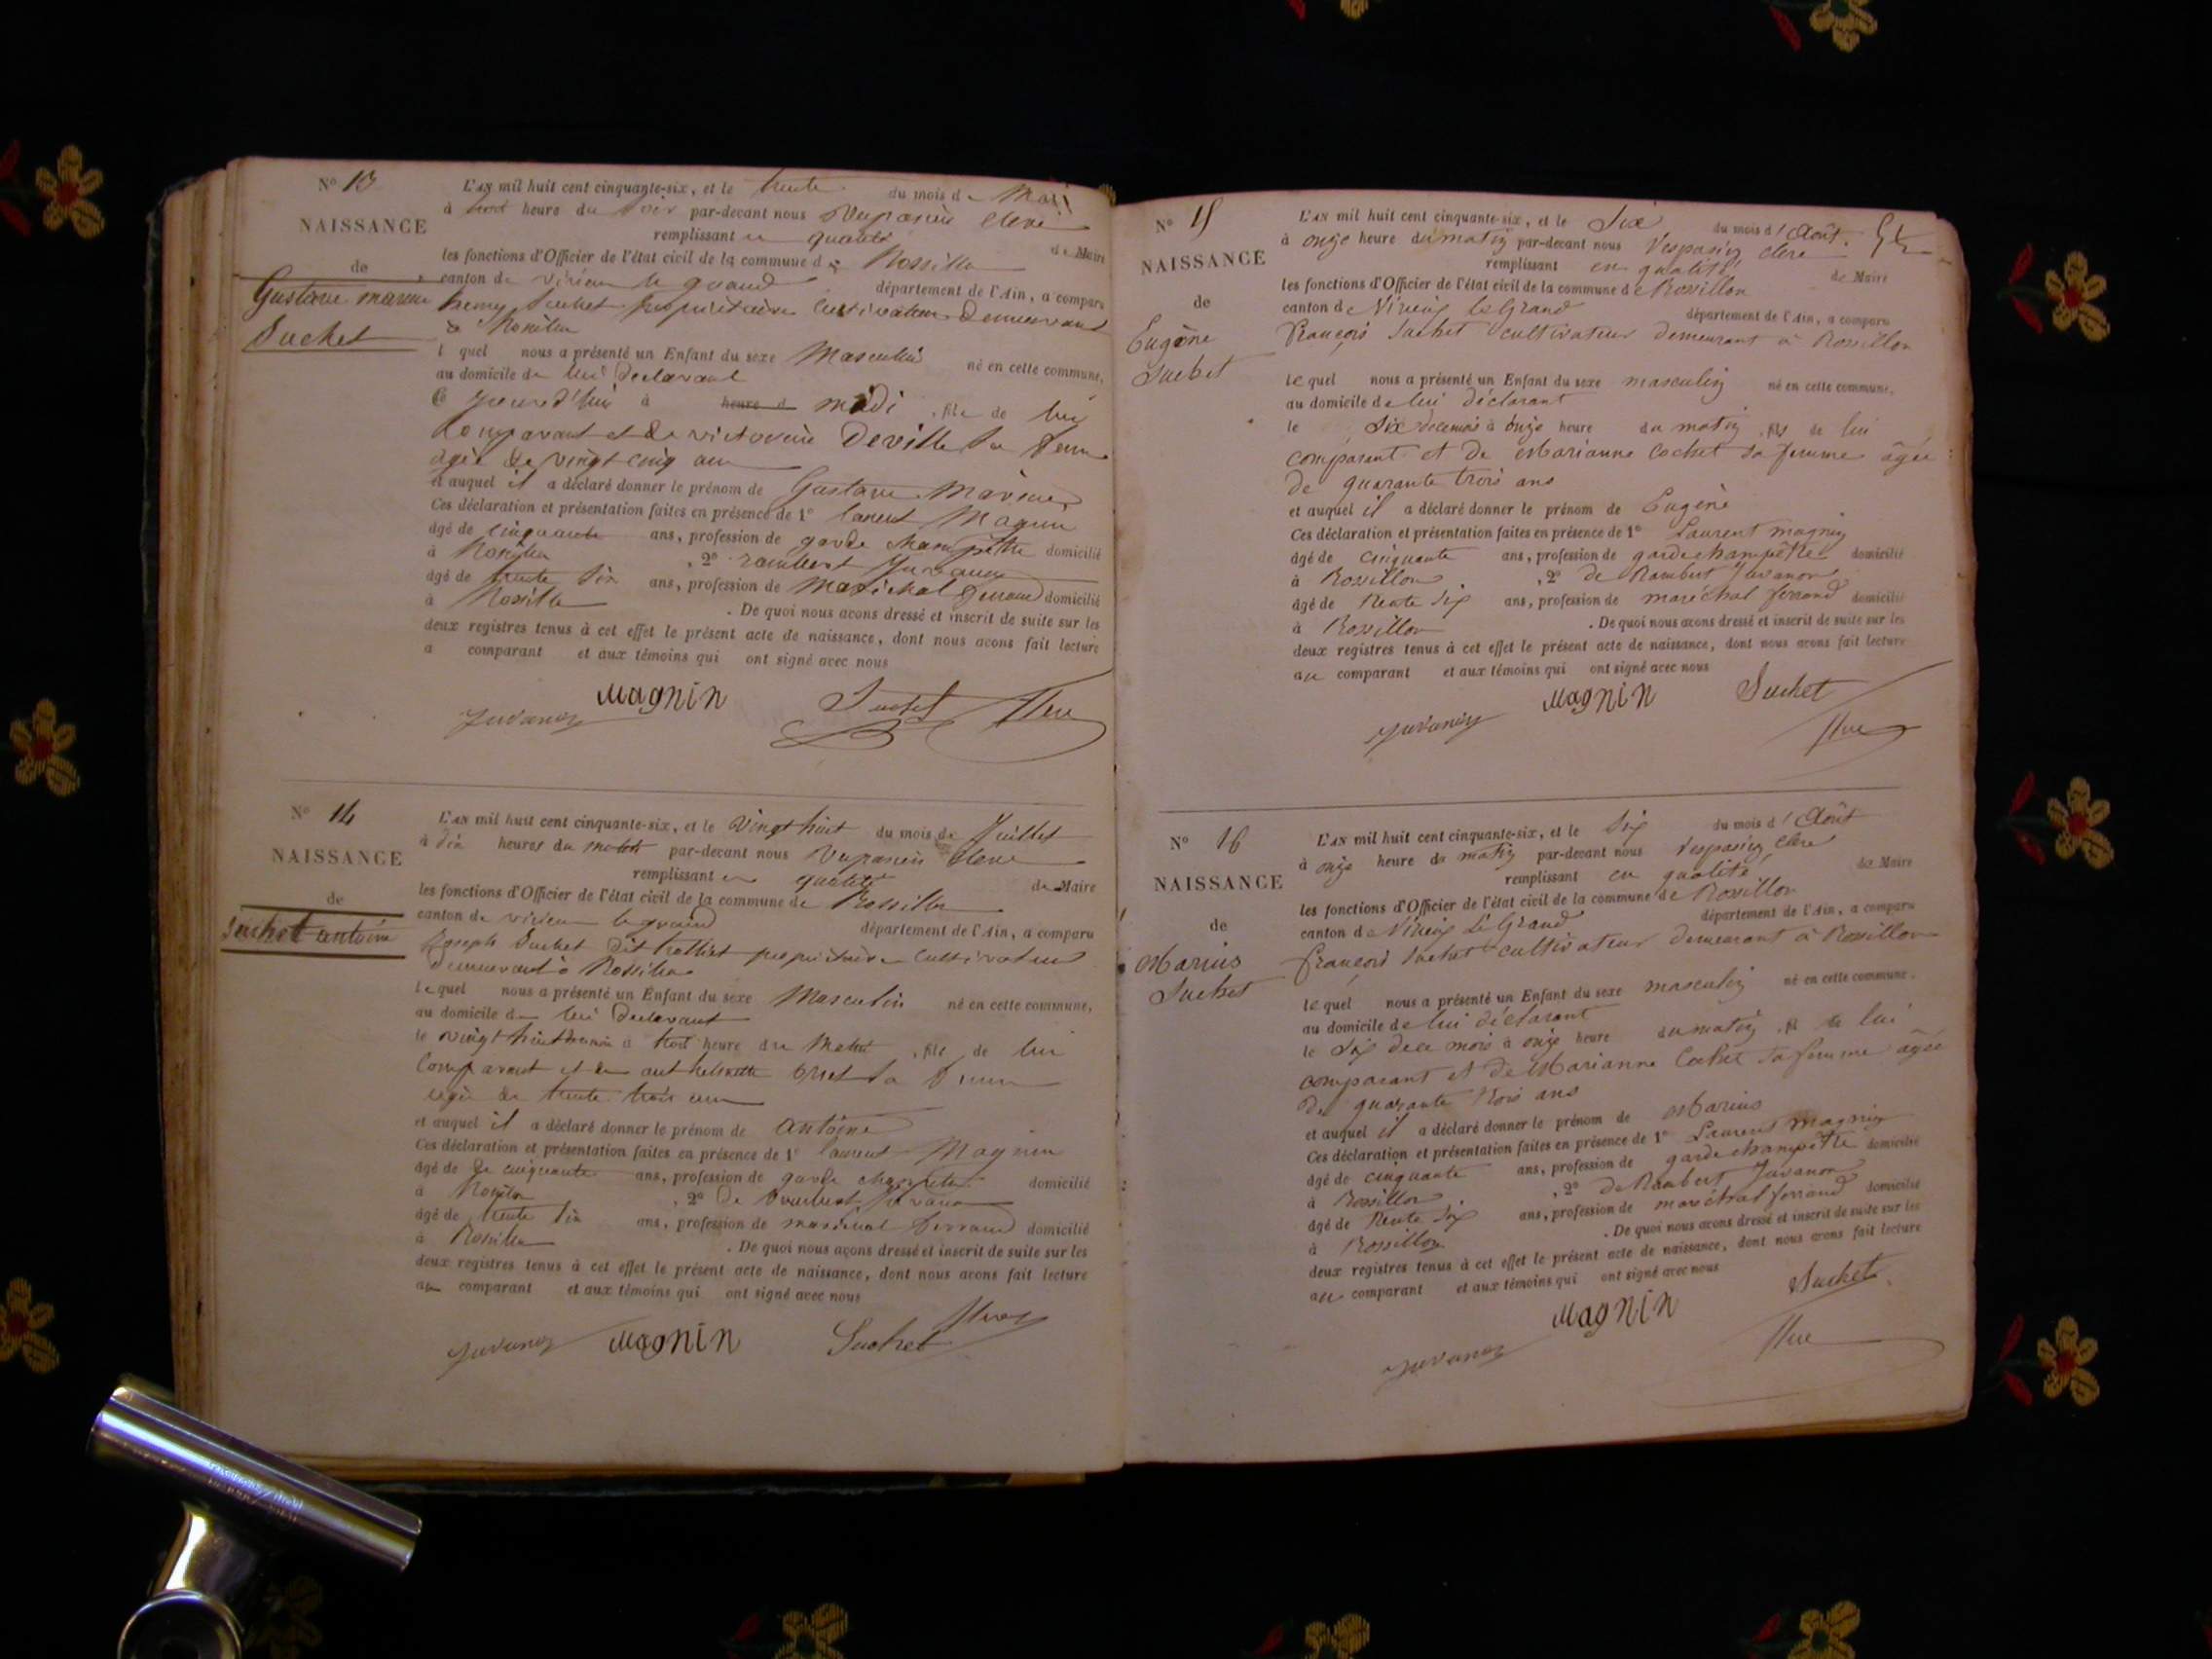 N° 13
NAISSANCE
de
Gustave marius
Suchet
L'AN mil huit cent cinquante-six, et le trente du mois de Mai
à heure du soir par-devant nous Vespasien Clerc
remplissant en qualité de Maire
les fonctions d'Officier de l'état civil de la commune de Rossillon
canton de virieu le grand département de l'Ain, a comparu
henry Suchet propriétaire cultivateur demeurant
à Rossillon
l quel nous a présenté un Enfant du sexe Masculin né en cette commune,
au domicile de lui Declarant
Ce jourd'hui à heure d midi , fils de lui
Comparant et de victorine Deville sa femme
agée de vingt cinq ans
et auquel il a déclaré donner le prénom de Gustave Marius
Ces déclaration et présentation faites en présence de 1° laurent Magnin
âgé de cinquante ans, profession de garde champêtre domicilié
à Rossillon , 2° rambert Juvanon
âgé de trente six ans, profession de Maréchal ferrand domicilié
à Rossillon . De quoi nous avons dressé et inscrit de suite sur les
deux registres tenus à cet effet le présent acte de naissance, dont nous avons fait lecture
a comparant et aux témoins qui ont signé avec nous
Juvanon Magnin Suchet Clerc
N° 14
NAISSANCE
de
Suchet antoine
L'AN mil huit cent cinquante-six, et le Vingt huit du mois de Juillet
à dix heures du matin par-devant nous Vespasien Clerc
remplissant en qualité de Maire
les fonctions d'Officier de l'état civil de la commune de Rossillon
canton de virieu le grand département de l'Ain, a comparu
Joseph Suchet dit propriétaire cultivateur
demeurant à Rossillon
Le quel nous a présenté un Enfant du sexe Masculin né en cette commune,
au domicile de lui Declarant
le vingt huit à heure du Matin , fils de lui
Comparant et de anthelmette sa femme
agée de trente trois ans
et auquel il a déclaré donner le prénom de antoine
Ces déclaration et présentation faites en présence de 1° laurent Magnin
âgé de de cinquante ans, profession de garde champêtre domicilié
à Rossillon , 2° De Juvanon
âgé de trente six ans, profession de maréchal ferrand domicilié
à Rossillon . De quoi nous avons dressé et inscrit de suite sur les
deux registres tenus à cet effet le présent acte de naissance, dont nous avons fait lecture
au comparant et aux témoins qui ont signé avec nous
Juvanon Magnin Suchet Clerc
N° 15
NAISSANCE
de
Eugène
Suchet
L'AN mil huit cent cinquante-six, et le Six du mois d'Août.
à onze heure du matin par-devant nous Vespasien Clerc
remplissant en qualité de Maire
les fonctions d'Officier de l'état civil de la commune de Rossillon
canton de Virieu le Grand département de l'Ain, a comparu
François Suchet cultivateur demeurant à Rossillon
le quel nous a présenté un Enfant du sexe masculin né en cette commune,
au domicile de lui déclarant
le Six de ce mois à onze heure du matin , fils de lui
comparant et de Marianne Cochet sa femme âgée
de quarante trois ans
et auquel il a déclaré donner le prénom de Eugène
Ces déclaration et présentation faites en présence de 1° Laurent magnin
âgé de cinquante ans, profession de garde champêtre domicilié
à Rossillon , 2° de Rambert Juvanon
âgé de trente six ans, profession de maréchal ferrand domicilié
à Rossillon . De quoi nous avons dressé et inscrit de suite sur les
deux registres tenus à cet effet le présent acte de naissance, dont nous avons fait lecture
au comparant et aux témoins qui ont signé avec nous
Juvanon Magnin Suchet Clerc
N° 16
NAISSANCE
de
Marius
Suchet
L'AN mil huit cent cinquante-six, et le Six du mois d'Août
à onze heure du matin par-devant nous Vespasien Clerc
remplissant en qualité de Maire
les fonctions d'Officier de l'état civil de la commune de Rossillon
canton de Virieu Le Grand département de l'Ain, a comparu
françois Suchet cultivateur demeurant à Rossillon
le quel nous a présenté un Enfant du sexe masculin né en cette commune.
au domicile de lui déclarant
le Six de ce mois à onze heure du matin , fils de lui
comparant et de Marianne Cochet sa femme âgée
de quarante trois ans
et auquel il a déclaré donner le prénom de Marius
Ces déclaration et présentation faites en présence de 1° Laurent magnin
âgé de cinquante ans, profession de garde champêtre domicilié
à Rossillon , 2° de Rambert Juvanon
âgé de trente six ans, profession de maréchal ferrand domicilié
à Rossillon . De quoi nous avons dressé et inscrit de suite sur les
deux registres tenus à cet effet le présent acte de naissance, dont nous avons fait lecture
au comparant et aux témoins qui ont signé avec nous
Juvanon Magnin Suchet Clerc